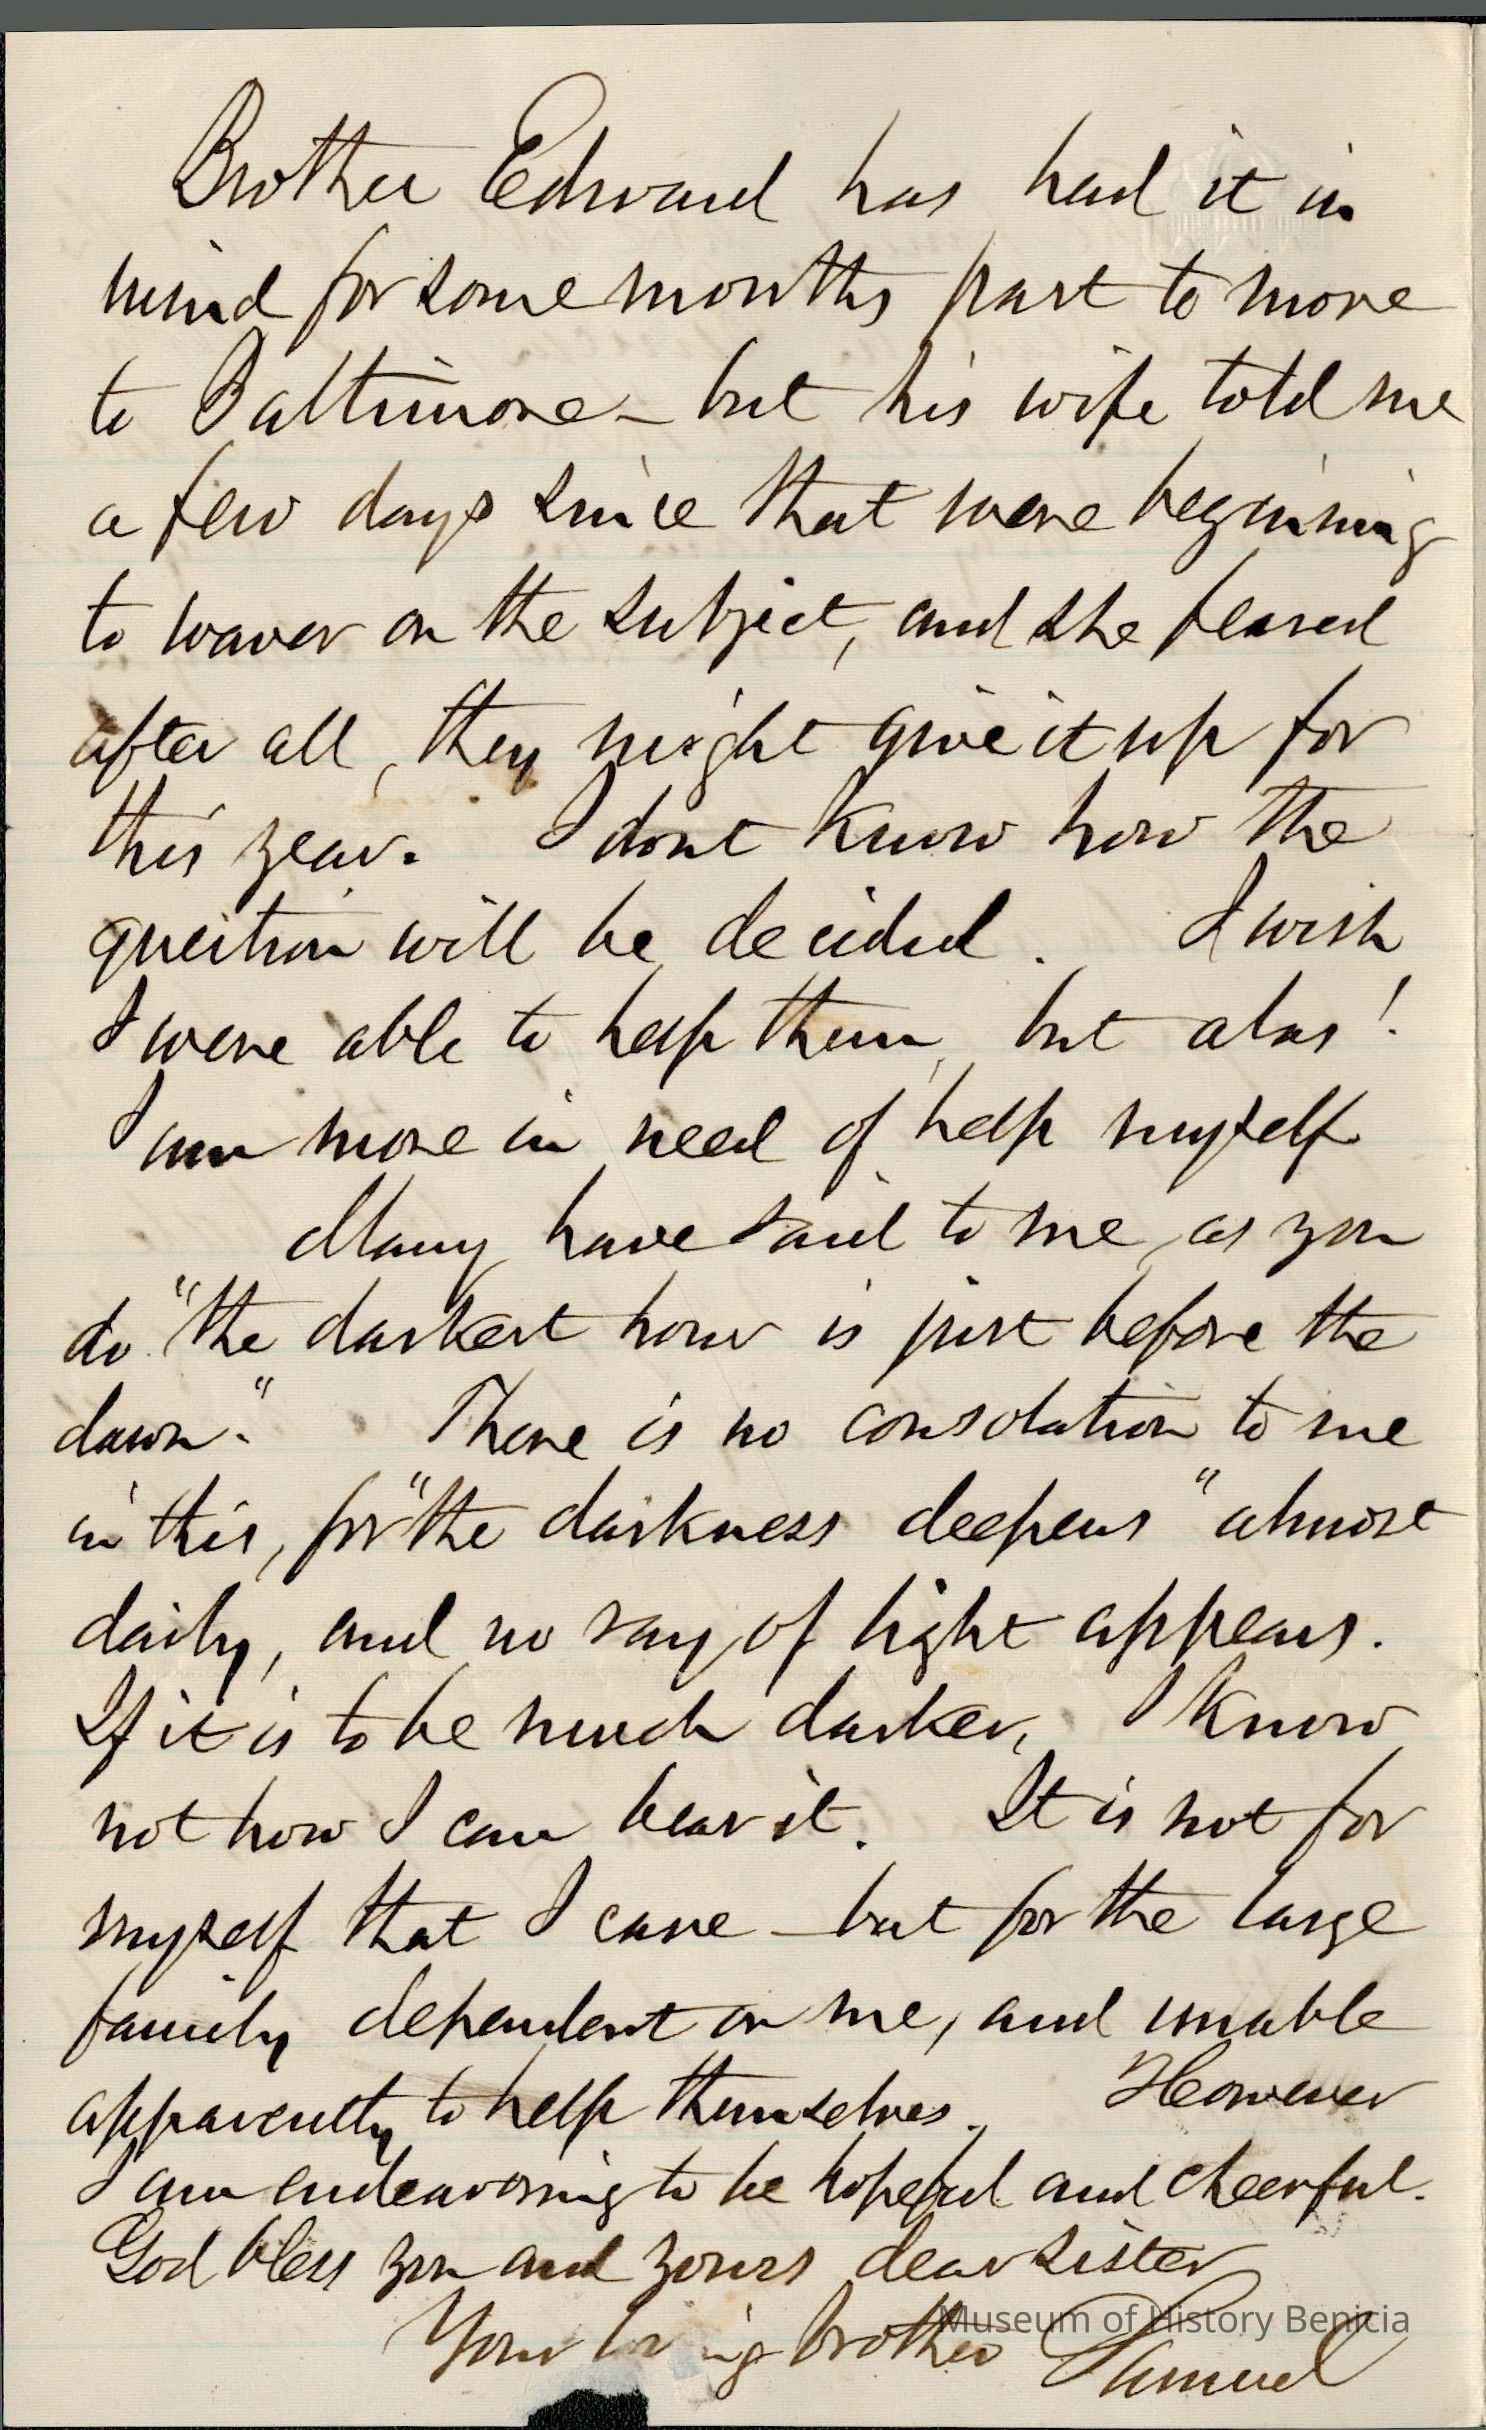 Brother Edward has had it in
mind for some months past to move
to Baltimore – but his wife told me
a few days since that were beginning
to waver on the subject, and she feared
after all, they might give it up for
this year. I dont know how the
question will be decided. I wish
I were able to help them, but alas!
I am more in need of help myself
Many have said to me, as you
do "the darkest hour is just before the
dawn." There is no consolation to me
in this, for "the darkness deepens" almost
daily, and no ray of light appears.
If it is to be much darker, I know
not how I can bear it. It is not for
myself that I care – but for the large
family dependent on me, and unable
apparently to help themselves. However
I am endeavoring to be hopeful and cheerful.
God bless you and yours dear sister
Your loving brother Samuel
Museum of History Benicia